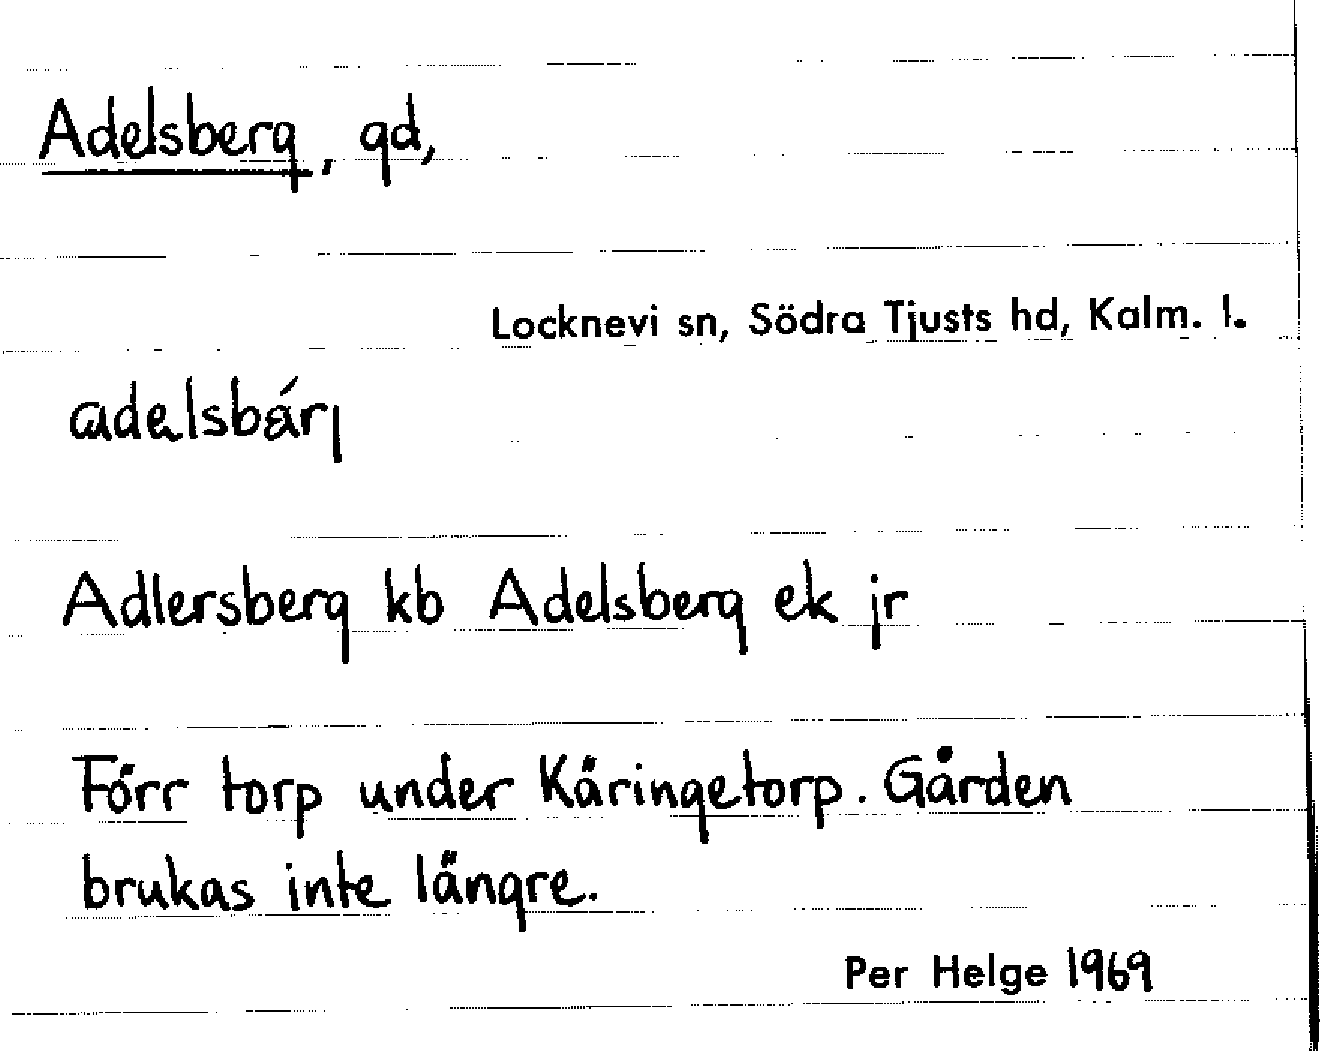 Adelsberg, gd,
Locknevi sn, Södra Tjusts hd, Kalm. l.
adelsbärj
Adlersberg kb Adelsberg ek jr
Förr torp under Käringetorp. Gården
brukas inte längre.
Per Helge 1969